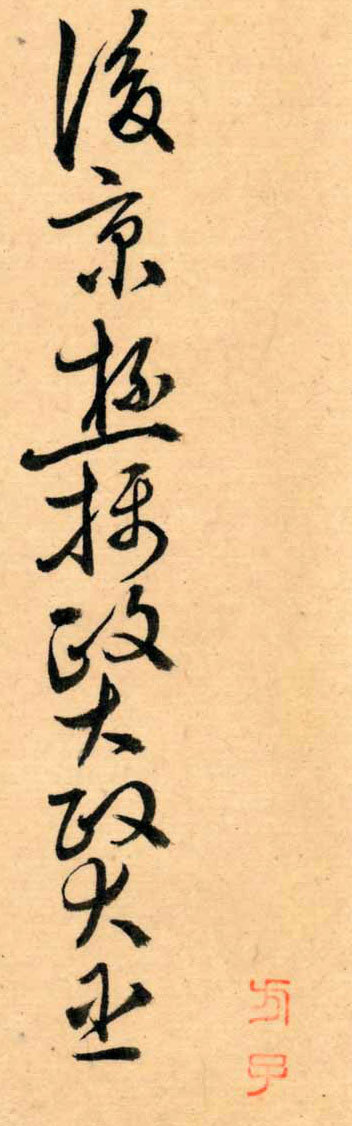 後京極摂政大政大臣